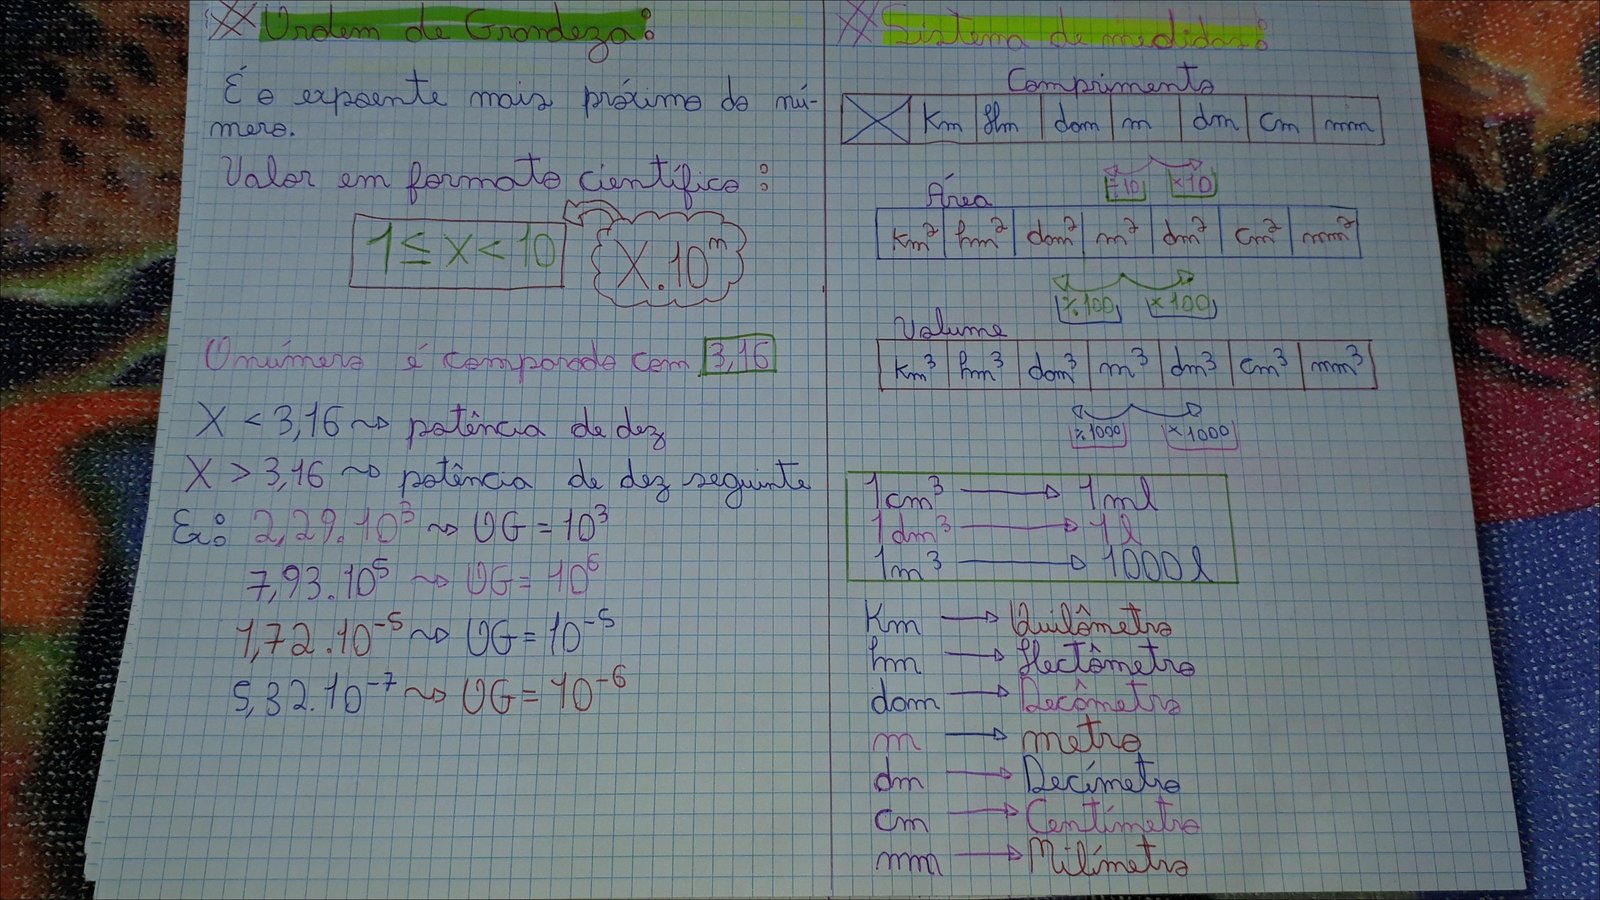 Ordem de Grandeza:
É o expoente mais próximo do nú-
mero.
Valor em formato científico:
1 ≤ x < 10
X.10ⁿ
O número é comparado com 3,16
X < 3,16 ~> potência de dez
X > 3,16 ~> potência de dez seguinte
Ex: 2,29.10³ ~> OG = 10³
7,93.10⁵ ~> OG = 10⁶
1,72.10⁻⁵ ~> OG = 10⁻⁵
5,32.10⁻⁷ ~> OG = 10⁻⁶
Sistema de medidas:
Comprimento
Km Hm dam m dm cm mm
÷10 ×10
Área
Km² hm² dam² m² dm² cm² mm²
÷100 ×100
Volume
Km³ hm³ dam³ m³ dm³ cm³ mm³
÷1000 ×1000
1cm³ → 1ml
1dm³ → 1l
1m³ → 1000l
Km → Quilômetro
hm → Hectômetro
dam → Decâmetro
m → metro
dm → Decímetro
cm → Centímetro
mm → Milímetro